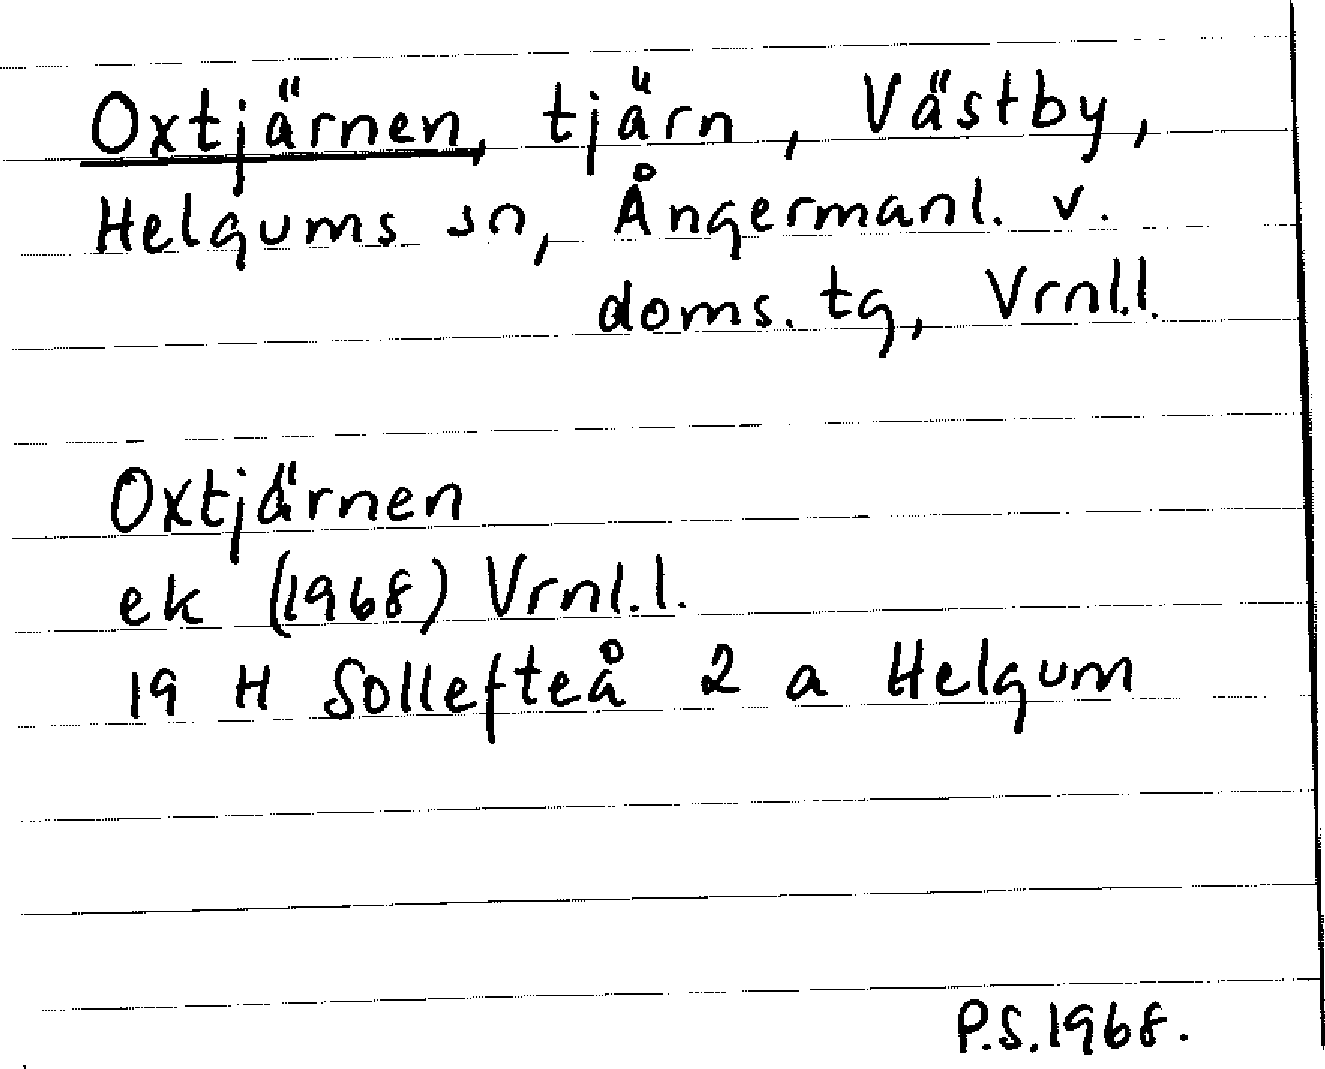 Oxtjärnen, tjärn, Västby,
Helgums sn, Ångermanl. v.
doms. tg, Vrnl.l.
Oxtjärnen
ek (1968) Vrnl.l.
19 H Sollefteå 2 a Helgum
P.S. 1968.